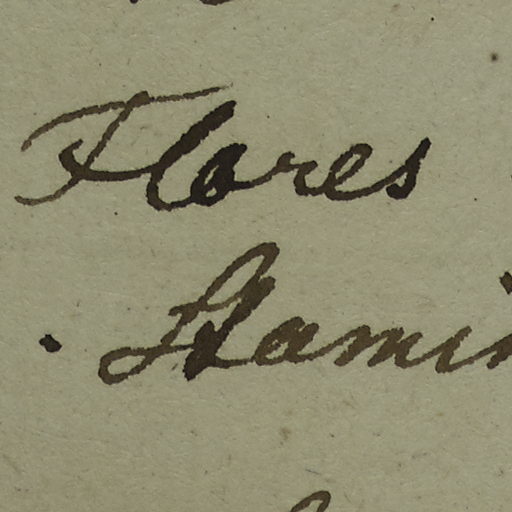 Flores
Stamin